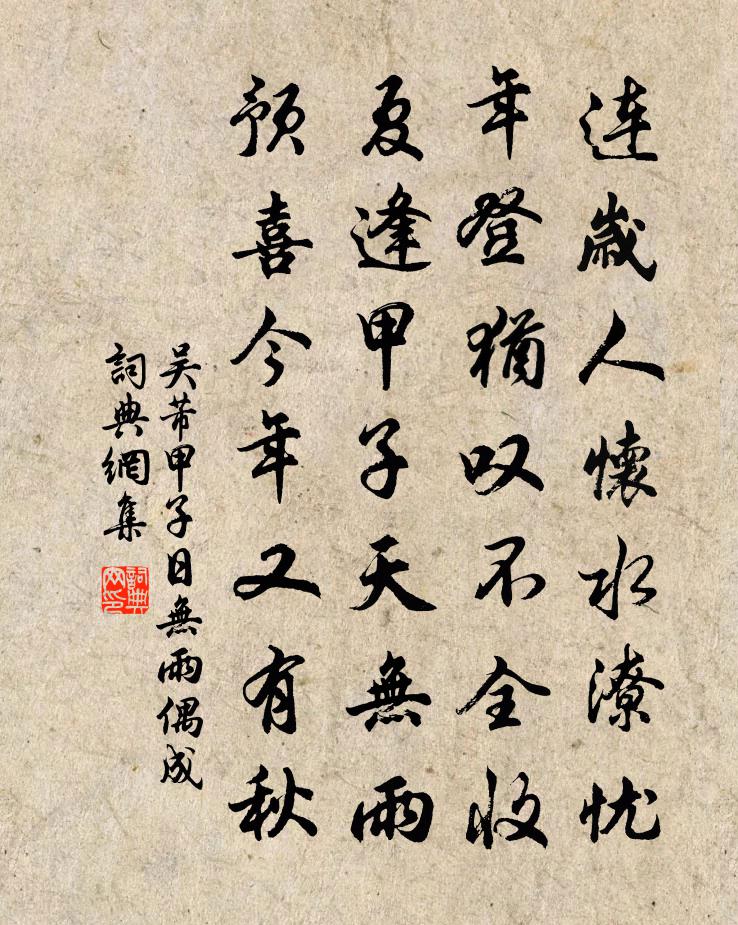 连歲人懷水潦忧
年登猶叹不全收
夏逢甲子天無雨
预喜今年又有秋
吴芾甲子日無雨偶成
詞典網集
詞典网印